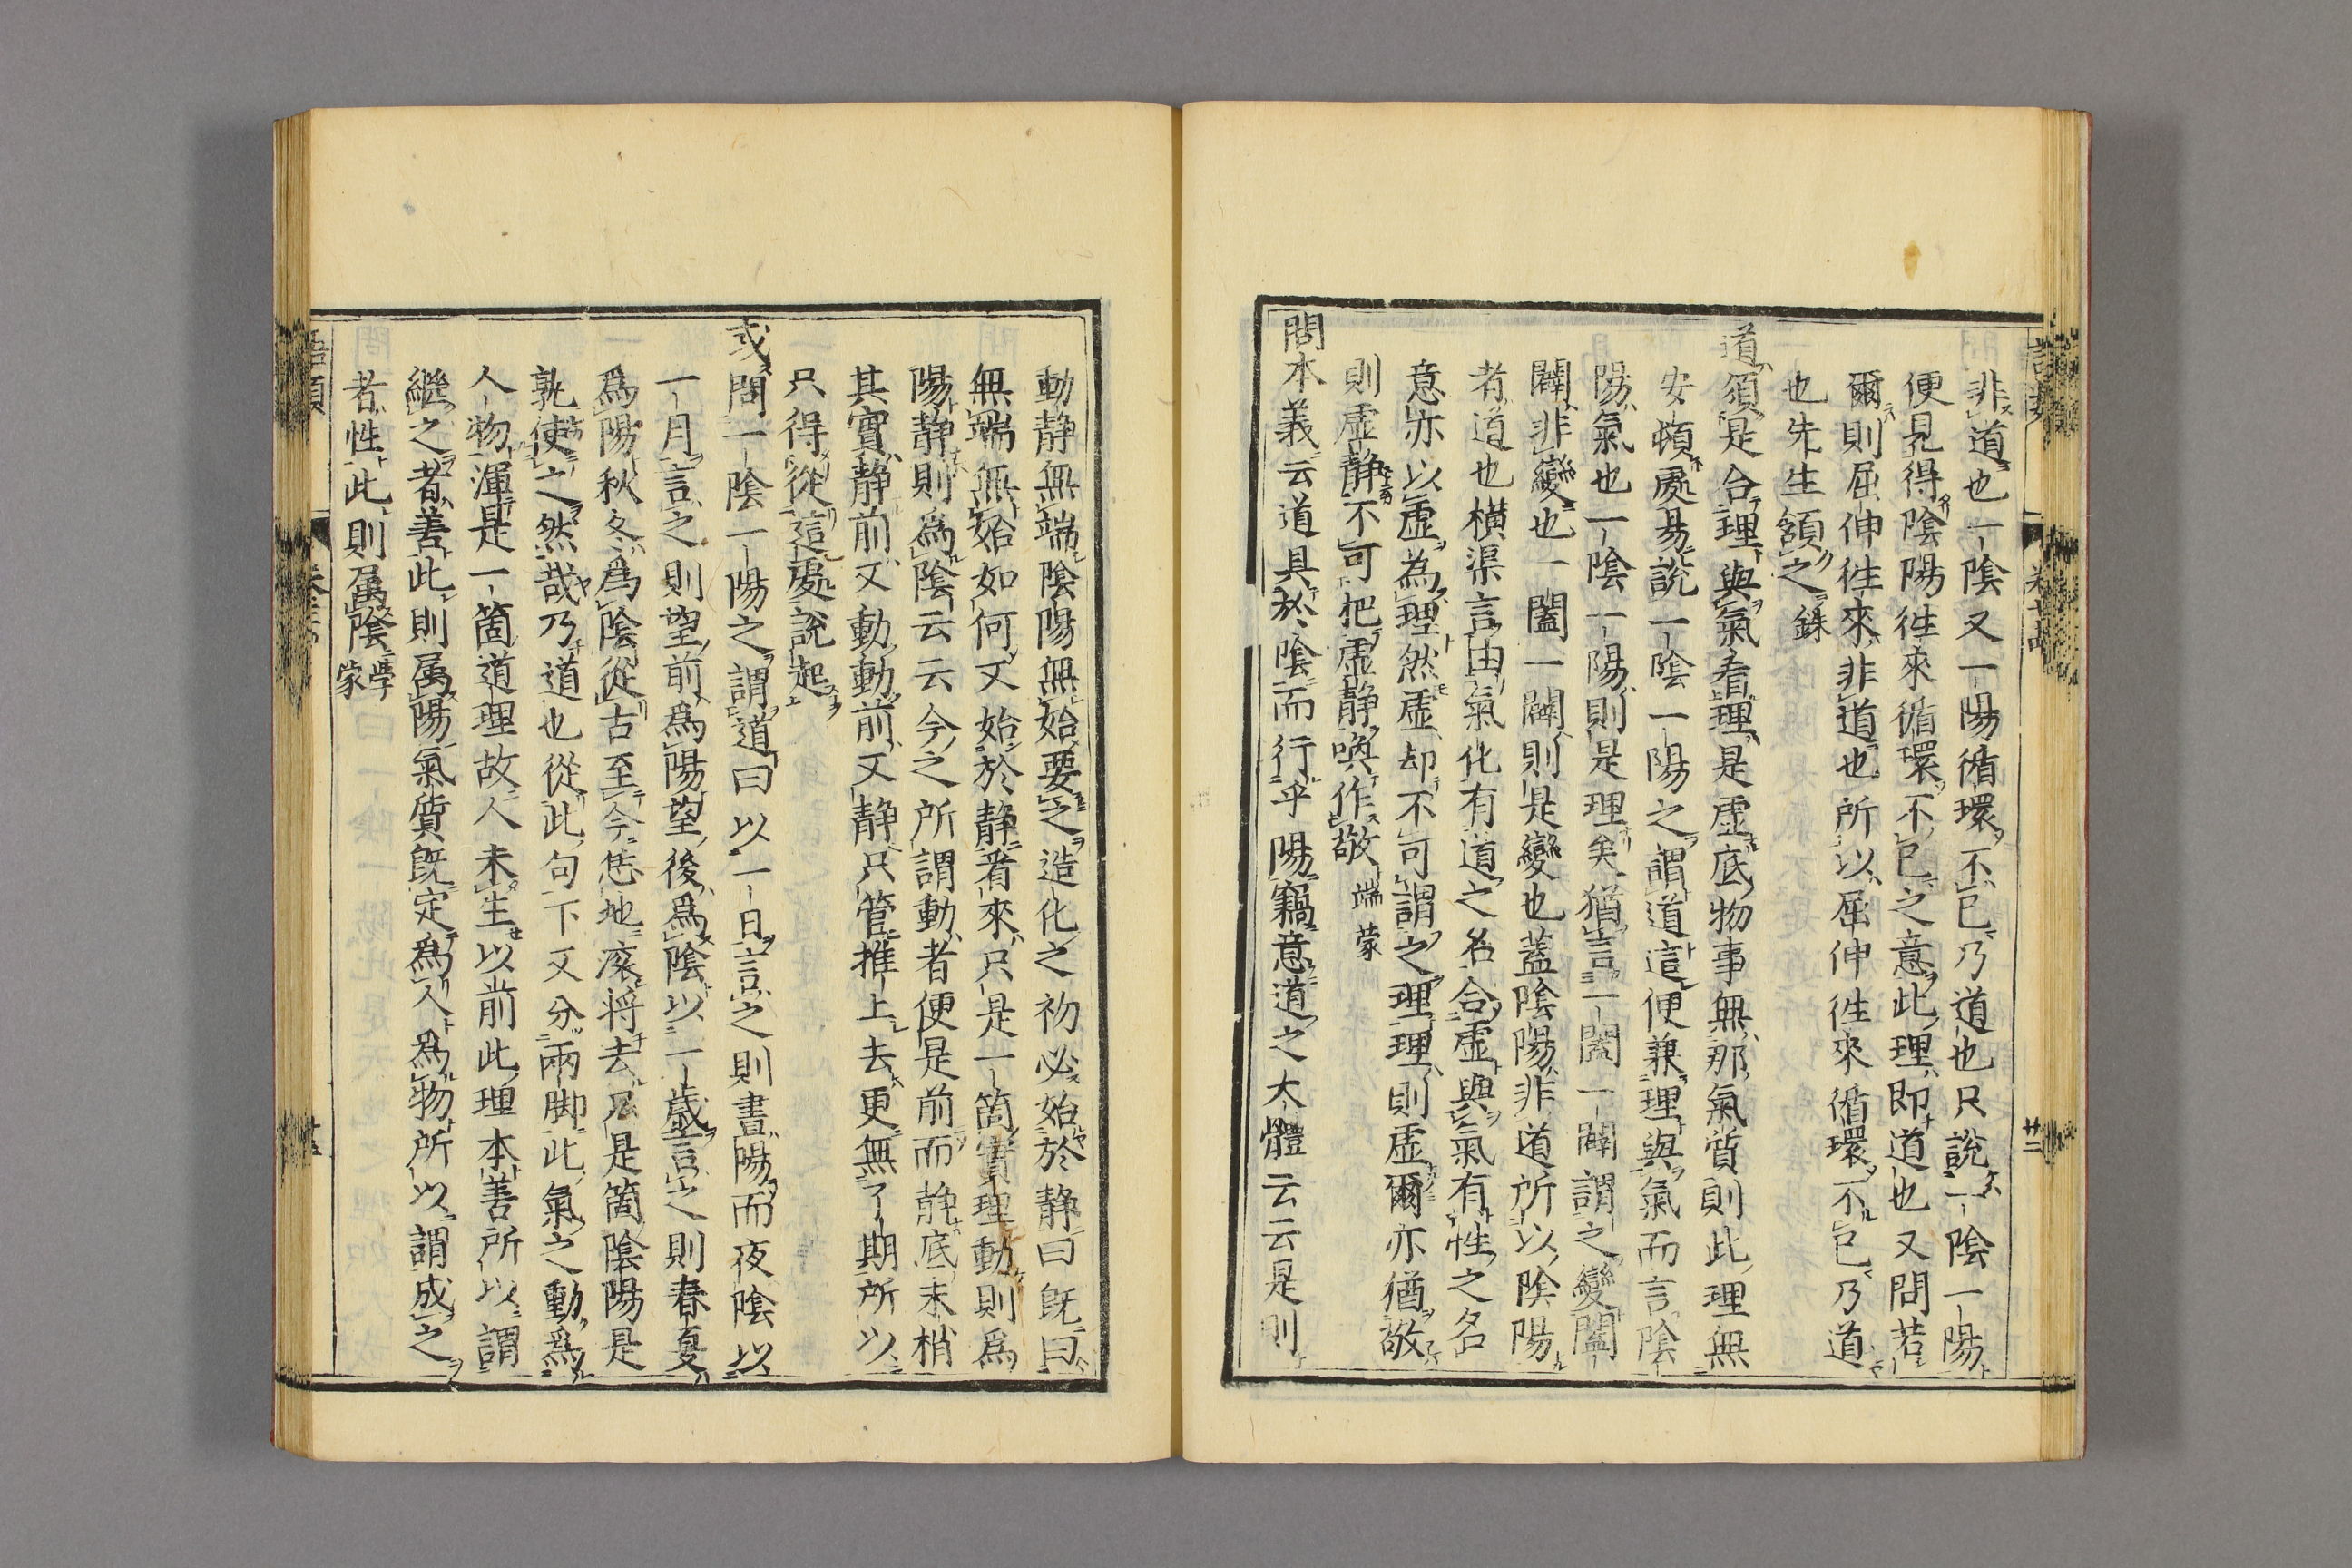 非道也一陰又一陽循環不已乃道也只說一陰一陽
便見得陰陽徃來循環不已之意此理即道也又問若
爾則屈伸徃來非道也所以屈伸徃來循環不已乃道
也先生頷之銖
道須是合理與氣看理是虛底物事無那氣質則此理無
安頓處易說一陰一陽之謂道這便兼理與氣而言陰
陽氣也一陰一陽則是理矣猶言一闔一闢謂之變闔
闢非變也一闔一闢則是變也蓋陰陽非道所以陰陽
者道也橫渠言由氣化有道之名合虛與氣有性之名
意亦以虛為理然虛却不可謂之理理則虛爾亦猶敬
則虛静不可把虛静喚作敬端蒙
問本義云道具於陰而行乎陽竊意道之大體云云是則
動静無端陰陽無始要之造化之初必始於静曰既曰
無端無始如何又始於静看來只是一箇實理動則爲
陽静則爲陰云云今之所謂動者便是前面静底末梢
其實静前又動動前又静只管推上去更無了期所以
只得從這處說起
或問一陰一陽之謂道曰以一日言之則晝陽而夜陰以
一月言之則望前爲陽望後爲陰以一歲言之則春夏
爲陽秋冬爲陰從古至今恁地滚將去只是箇陰陽是
孰使之然哉乃道也從此句下又分兩脚此氣之動爲
人物渾是一箇道理故人未生以前此理本善所以謂
繼之者善此則属陽氣質既定爲人爲物所以謂成之
者性此則属陰學蒙